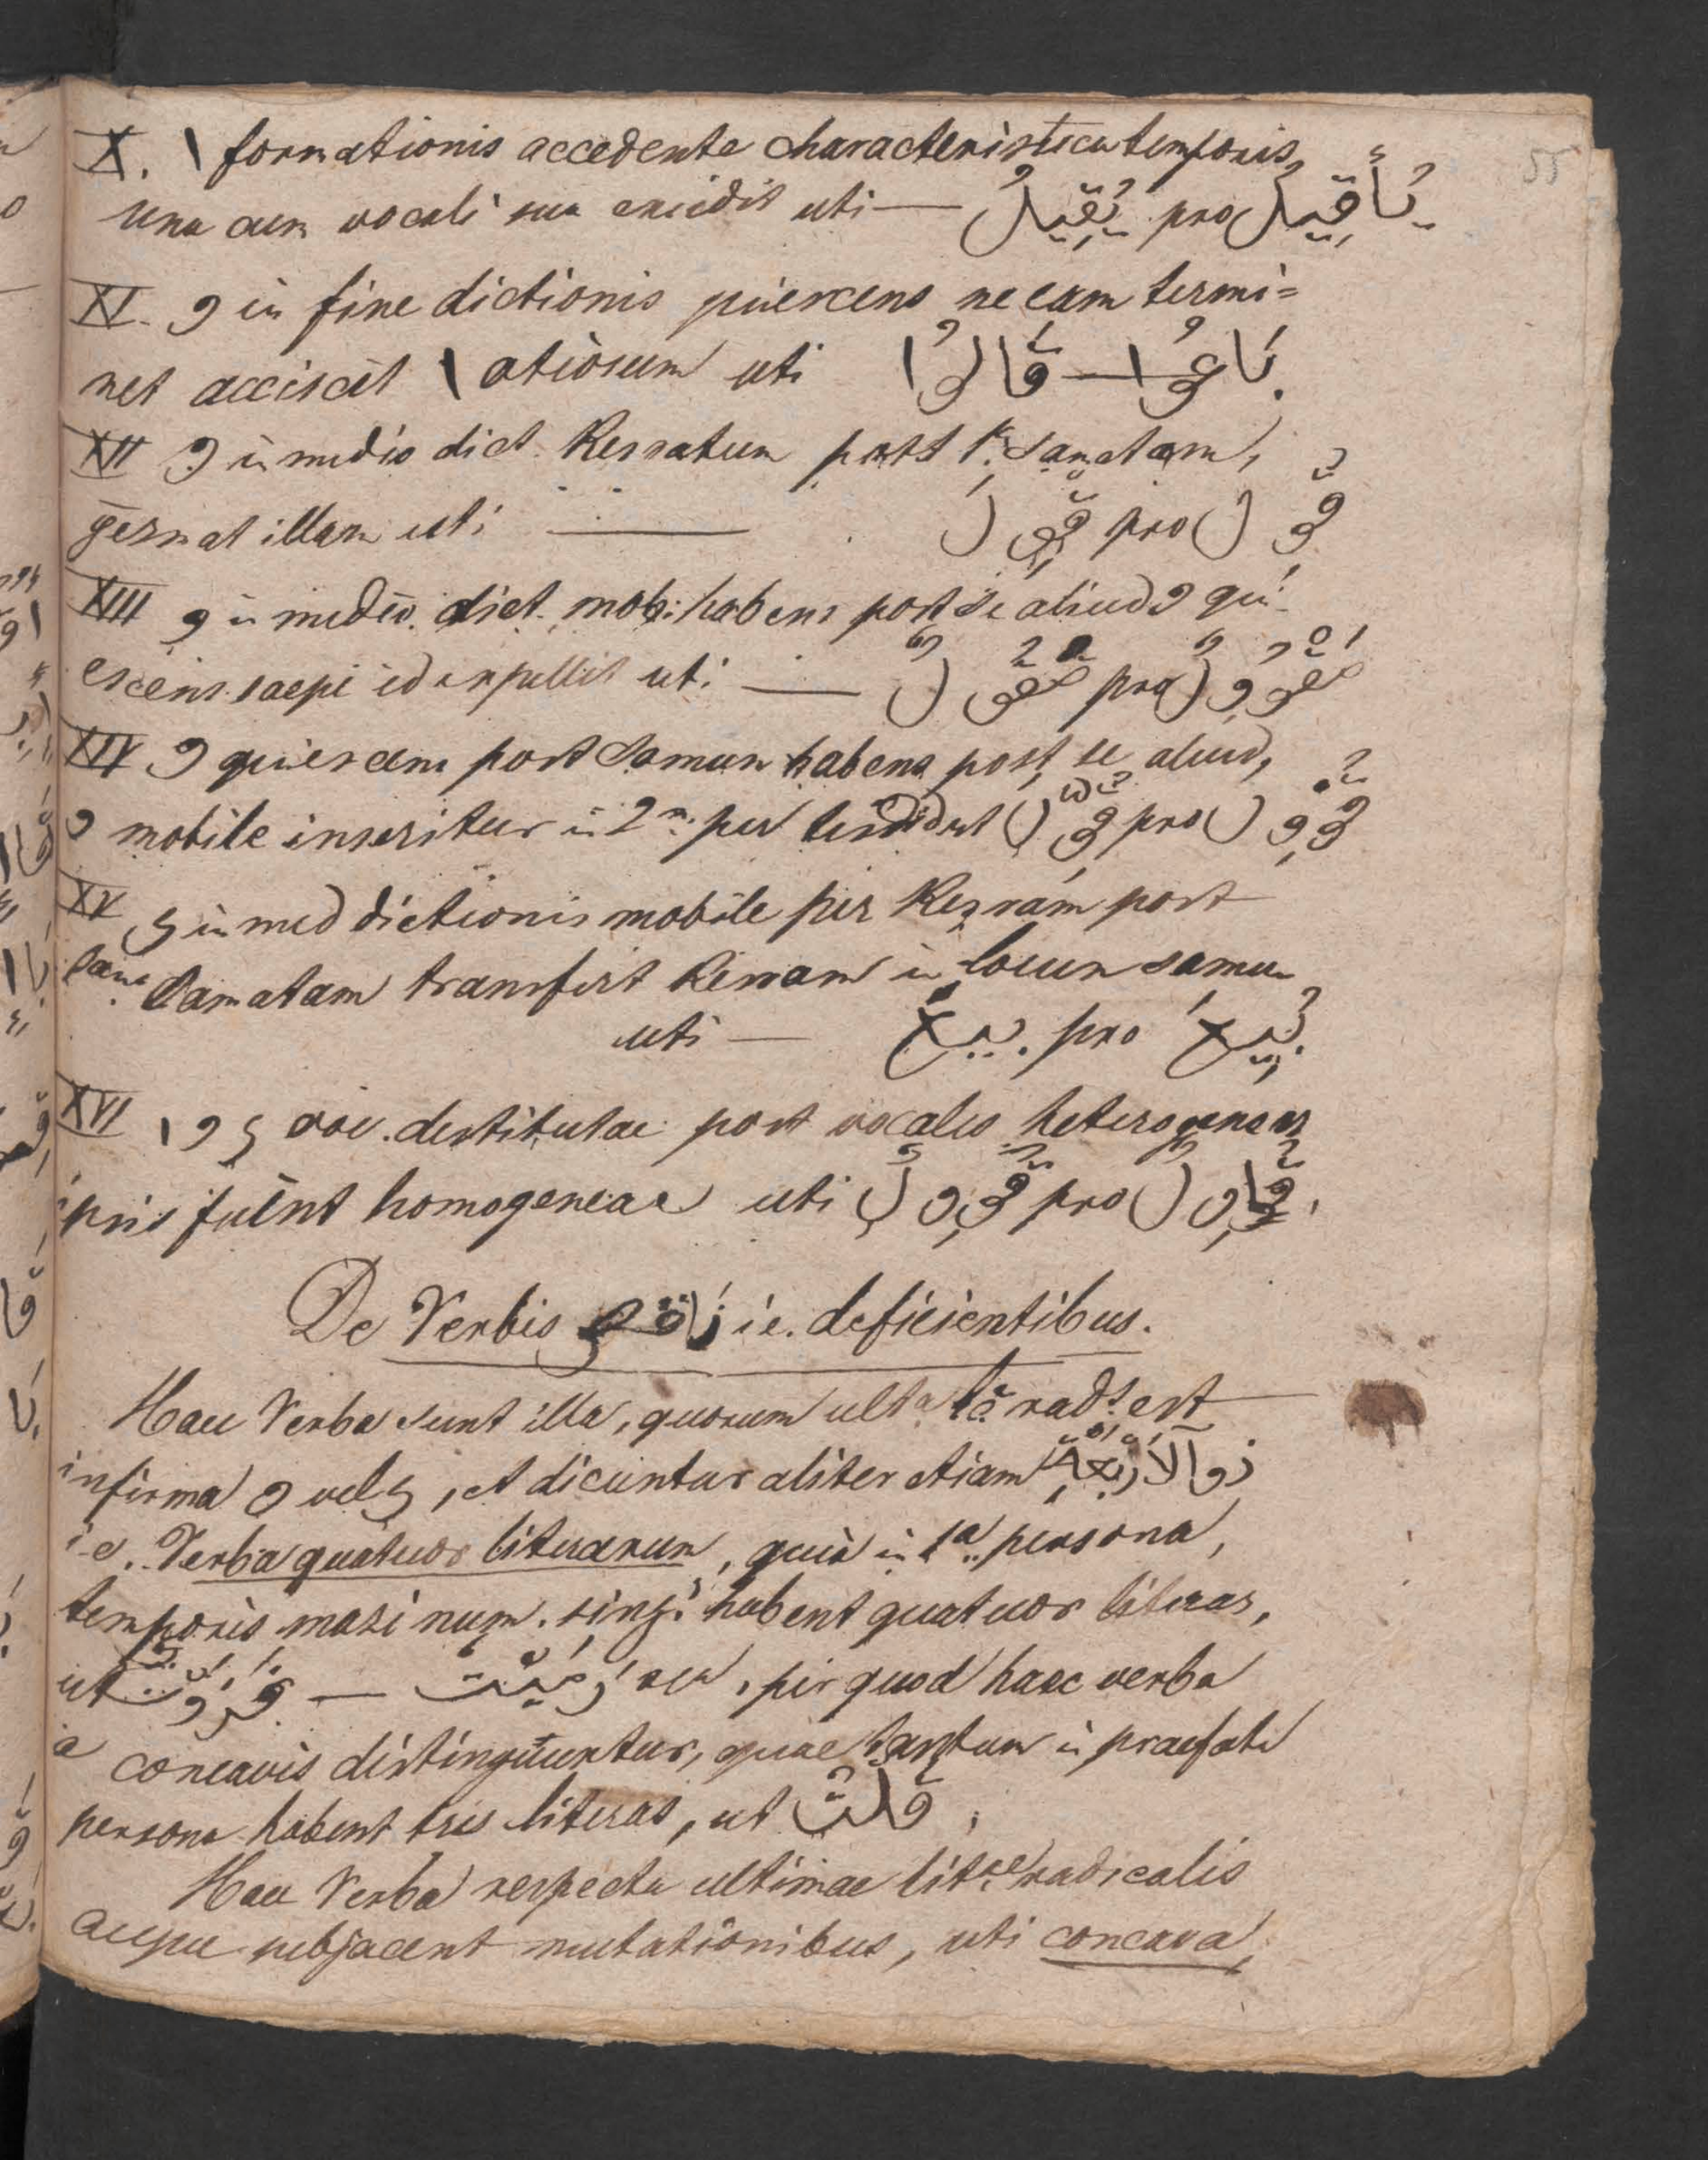 55
X. ا formationis accedente characteristica temporis,
una cum vocali sua excidit uti — يُقِيلُ pro يُأَقِيلُ
XI. و in fine dictionis quiescens ne eam termi=
net acciscit ا otiosum uti قَالُوا — بَاعُوا
XII و in medio dict. Kesratum post damatam,
gesmat illam uti — قِوْلَ pro قُوِلَ
XIII و in medio dict. mob: habens post se aliud و qui-
escens saepe id expellit uti — مَقُولٌ pro مَقْوُولٌ
XIV و quiescens post damma habens post se aliud,
و mobile inseritur in 2m per tesdid ut قُوِّلَ pro قُوْوِلَ
XV ي in med dictionis mobile per Kesram post
damatam transfert Kesram in locum damma
uti — بِيعَ pro بُيِعَ
XVI ا و ي voc. destitutae post vocales heterogeneas
ipsis fiunt homogeneae uti قُووِلَ pro قُاوِلَ
De Verbis نَاقِص i.e. deficientibus.
Haec Verba sunt illa, quorum ulta lā radl est
infirma و vel ي, et dicuntur aliter etiam ذو الْأَرْبَعَةِ
i.e. Verba quatuor literarum, quia in 1a persona,
temporis masi num. singi habent quatuor literas,
ut غَزَوْتُ — رَمَيْتُ, per quod haec verba
a concavis distinguuntur, quae tantum in praefata
persona habent tres literas, ut قُلْتُ.
Haec Verba respectu ultimae litae radicalis
aeque subjacent mutationibus, uti concava,